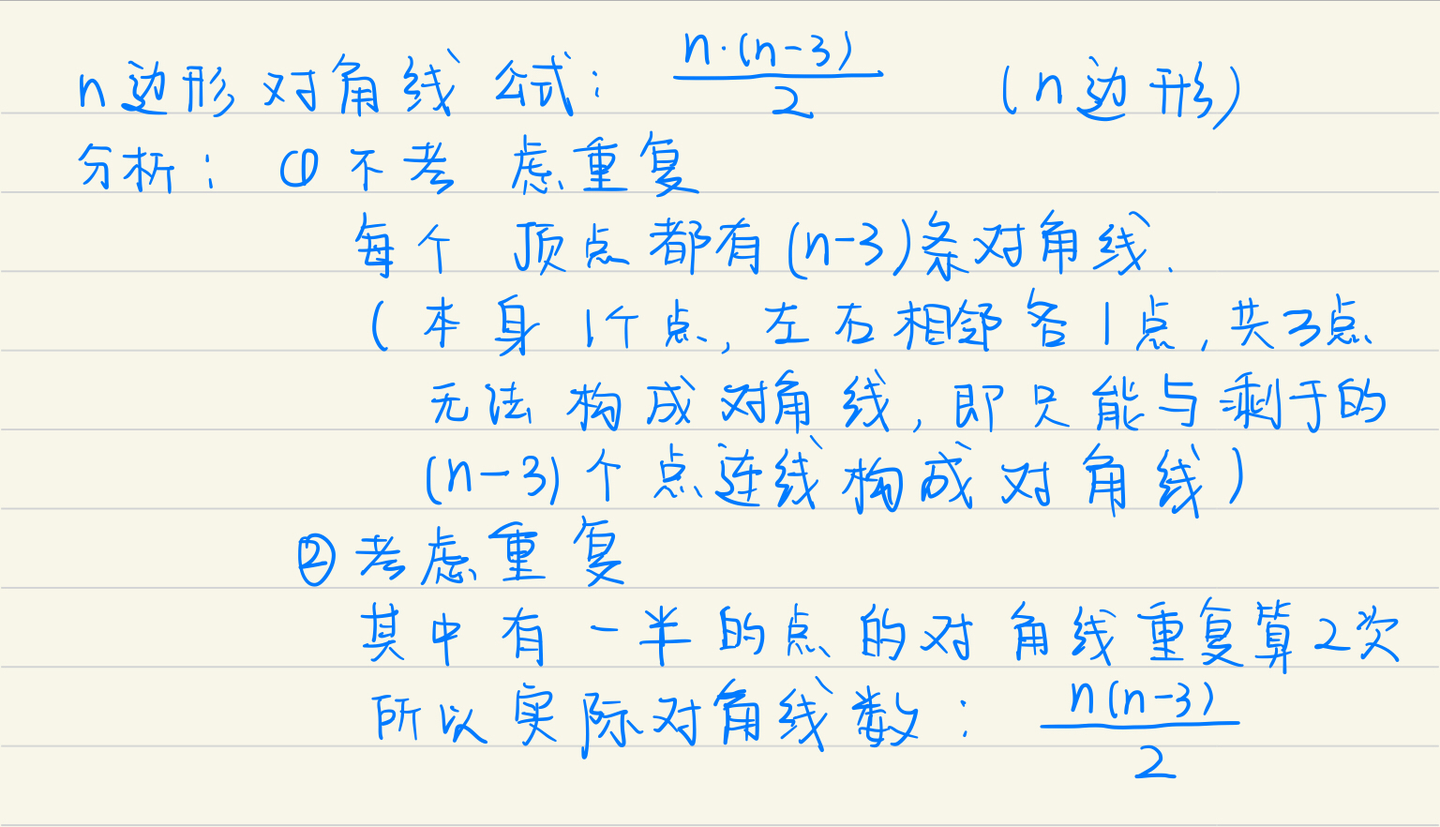 n边形对角线公式: n·(n-3)/2 (n边形)
分析: ①不考虑重复
每个顶点都有(n-3)条对角线.
(本身1个点,左右相邻各1点,共3点
无法构成对角线,即只能与剩于的
(n-3)个点连线构成对角线)
②考虑重复
其中有一半的点的对角线重复算2次
所以实际对角线数: n(n-3)/2